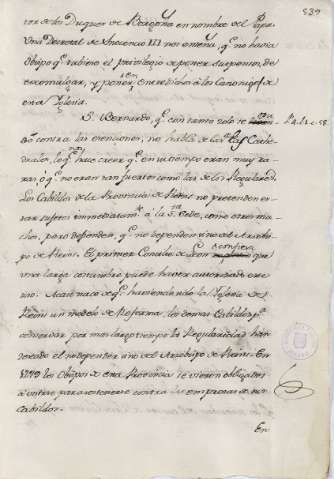 539
tor de los Duques de Borgoña en nombre del Papa.
Una Decretal de Inocencio III nos enseña, q.e no havia
Obispo q.e tubiese el privilegio de poner suspension, de
excomulgar, y poner en entredicho à los Canonigos de
esta Iglesia.
S. Bernardo, q.e con tanto zelo se
contra las esenciones, no habla de las Cate-
drales, lo q.e hace creer q.e en su tiempo eran muy ra-
ras, ò q.e no eran tan fuertes como las de los Regulares.
Los Cabildos de la Provincia de Reims no pretenden es-
tar sugetos inmediatam.te à la S.ta Sede, como otros mu-
chos, pero defienden, q.e no dependen sino del Arzobis-
po de Reims. El primer Concilio de Leon confiesa que
una larga costumbre puede haver autorizado este
uso. Acaso nace de q.e haviendo sido la Iglesia de
Reims un modelo de Reforma, los demas Cabildos p.a
conservar por mas largo tiempo la Regularidad han
deseado el no depender sino del Arzobispo de Reims. En
los Obispos de esta Provincia se vieron obligados
à unirse para sostenerse contra las empresas de sus
Cabildos.
En